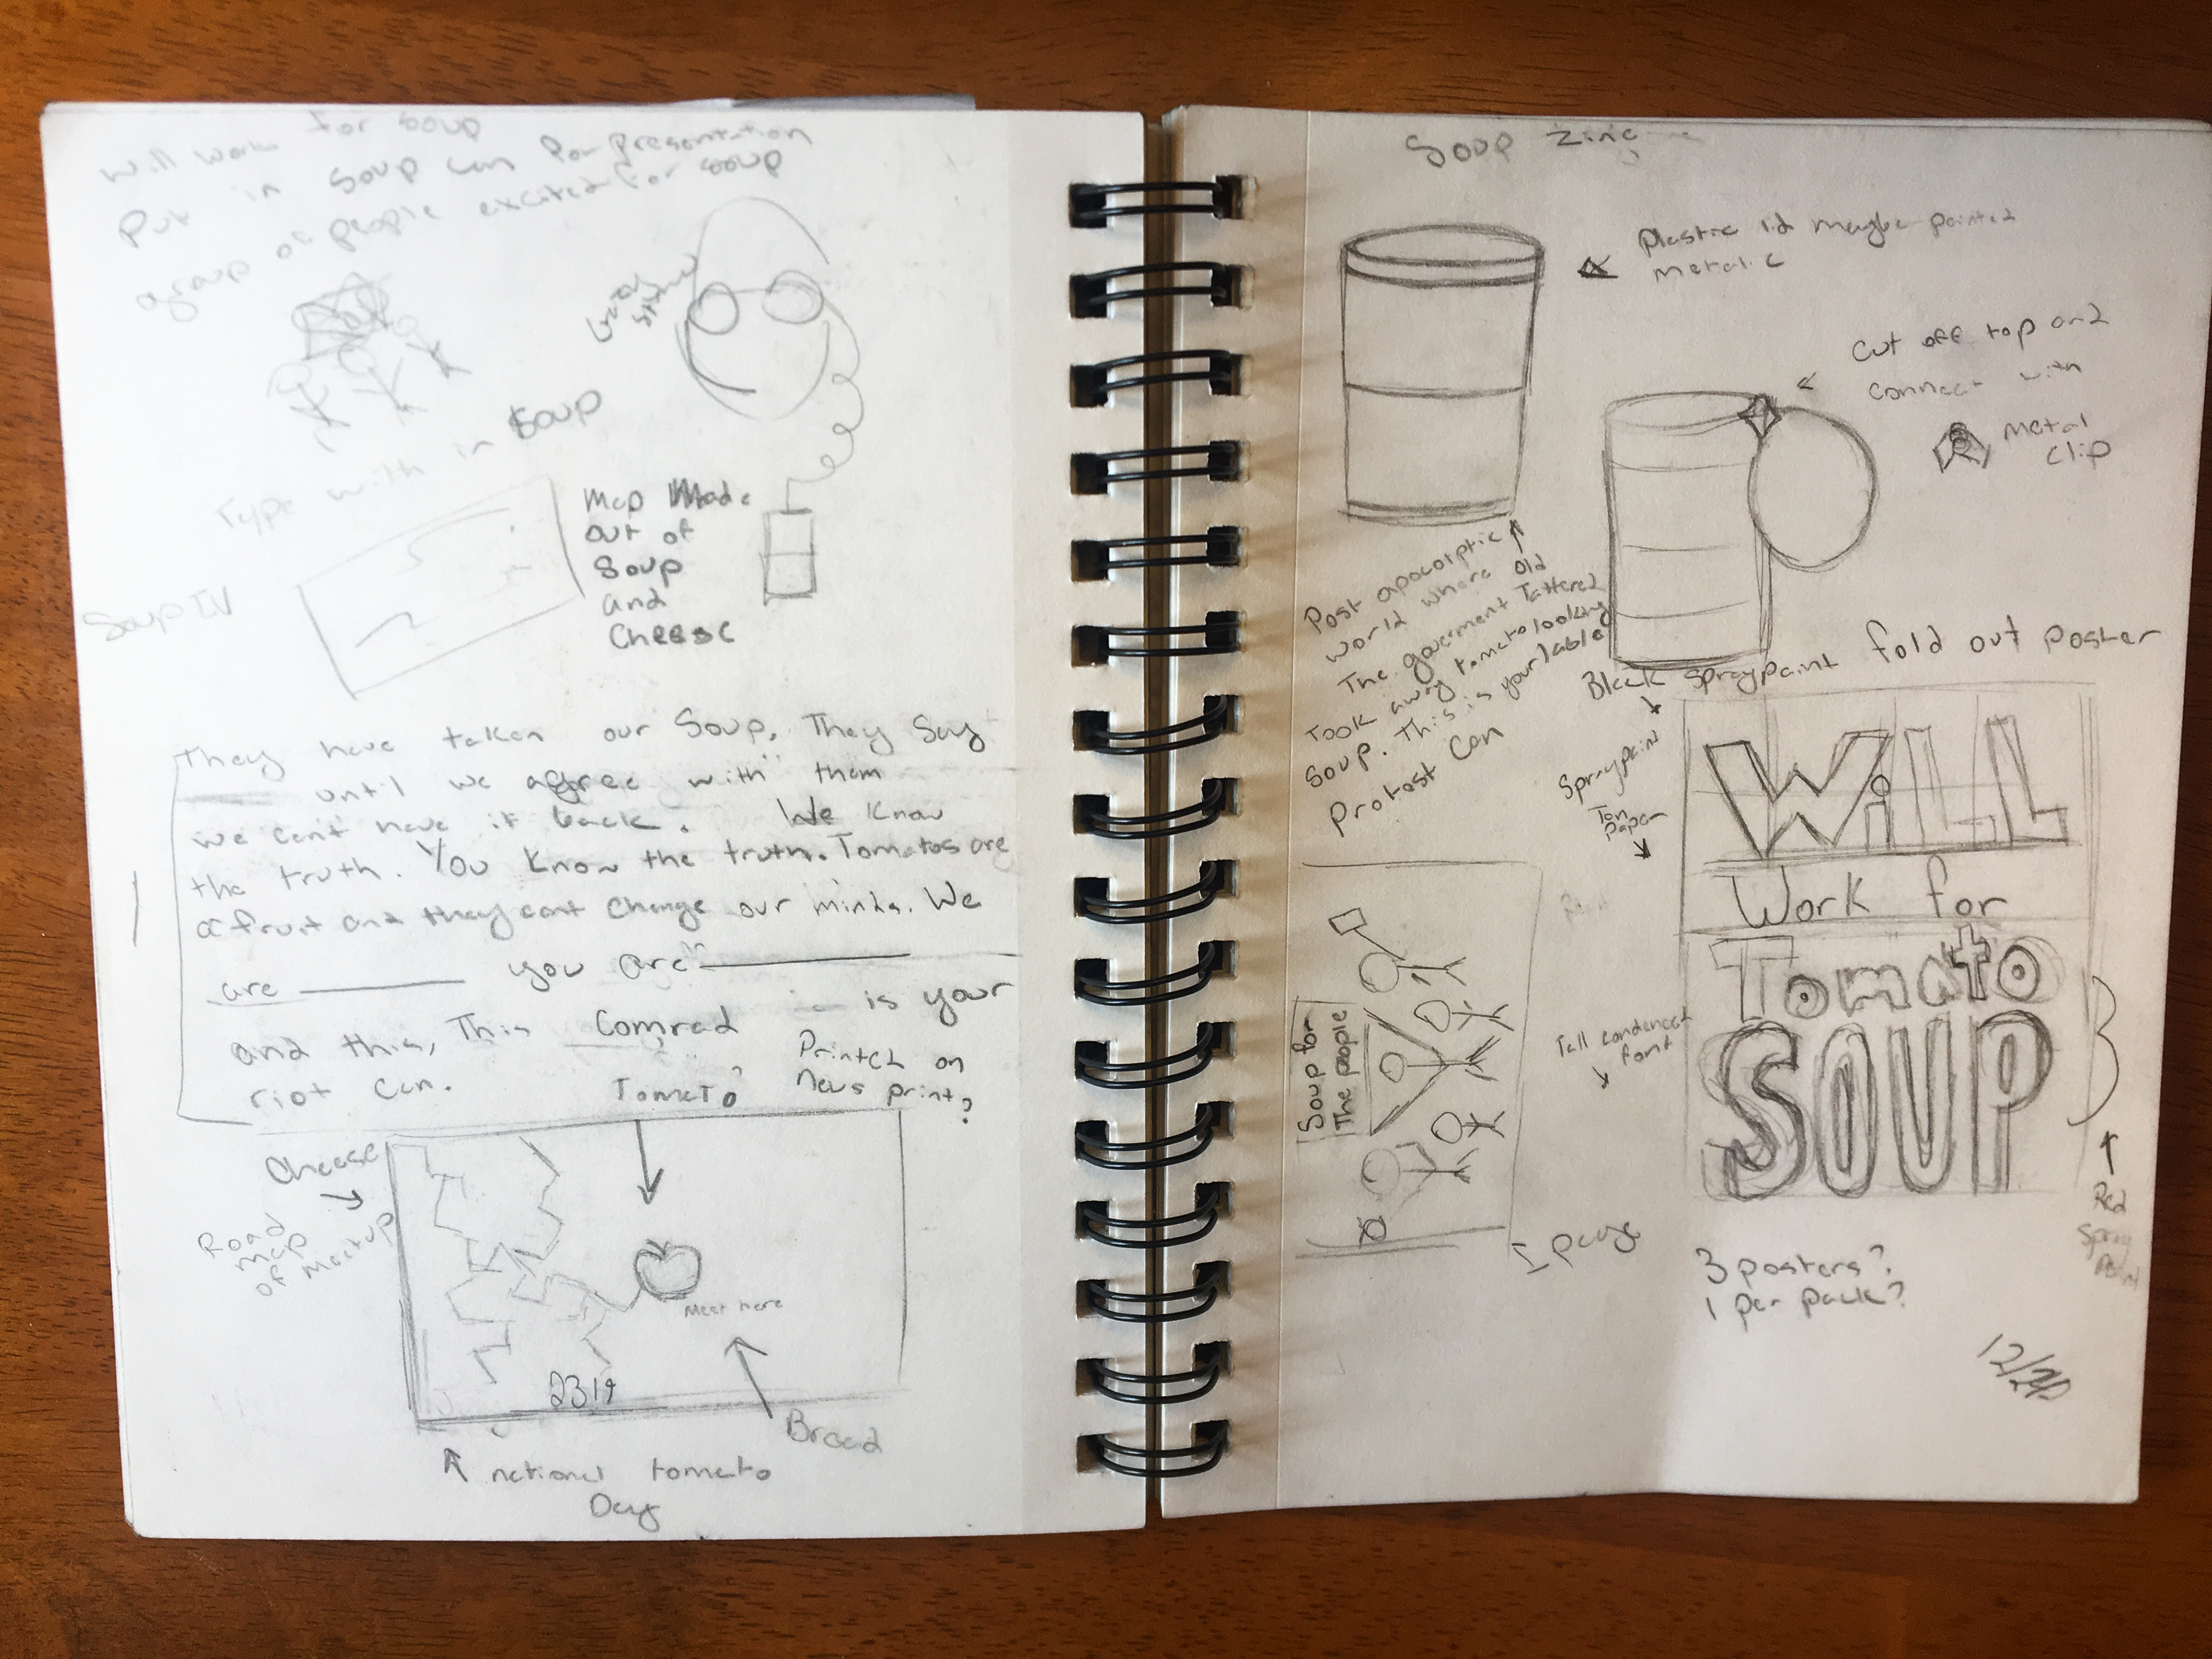 Will work for soup
Put in soup can for presentation
a group of people excited for soup
Type with in soup
Soup IV
Map Made
out of
Soup
and
Cheese
They have taken our Soup. They Say
until we agree with them
we cant have it back. We Know
the truth. You Know the truth. Tomatos are
a fruit and they cant change our minds. We
are you are
and this, This Comrad is your
riot can.
Tomato
Printed on
News print?
Cheese
Road
map
of meetup
Meet here
2319
Bread
national tomato
Day
Soup Zine
Plastic lid maybe painted
metalic
Cut off top and
connect with
metal
clip
Post apocolptic
world where
The goverment
Took away tomato
Soup. This is your
Protest Can
old
Tattered
looking
lable
Black Spraypaint
fold out poster
Spraypaint
Tan
Paper
WiLL
Work for
Tomato
SOUP
Tall condensed
font
Red
Spray
Paint
Soup for
The people
1 page
3 posters?
1 per pack?